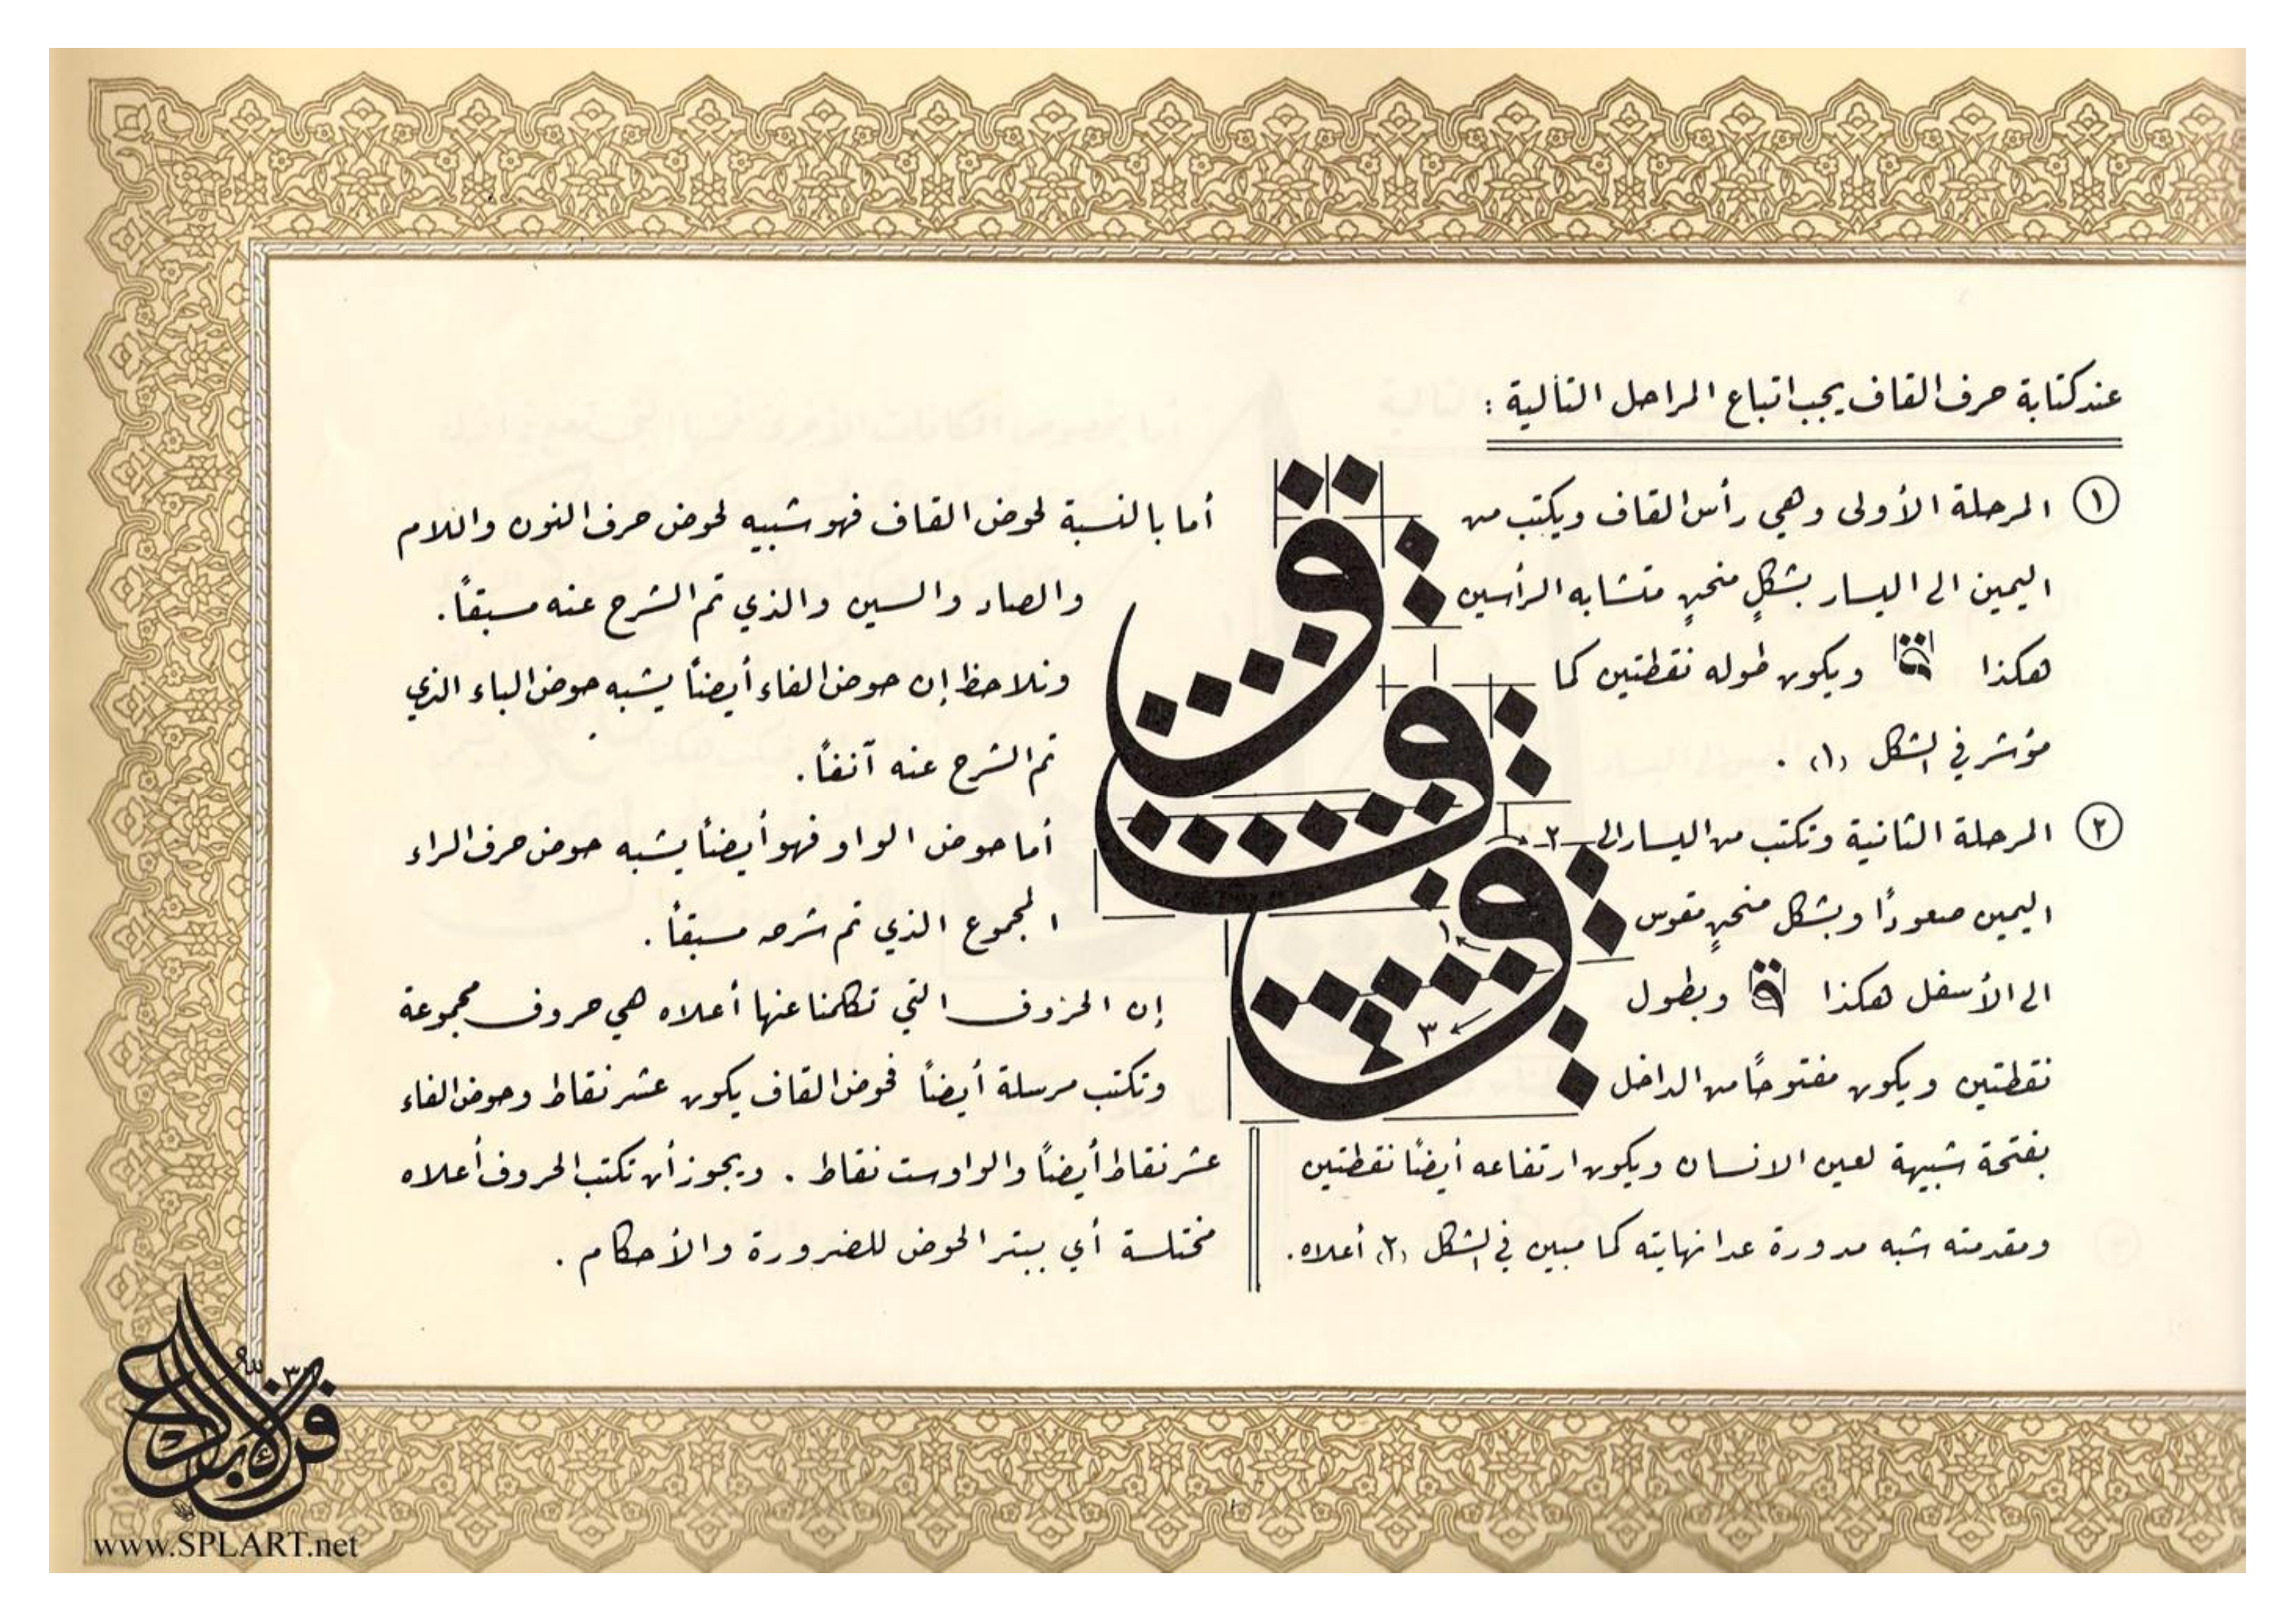 عند كتابة حرف القاف يجب اتباع المراحل التألية :
١ المرحلة الأولى وهي رأس القاف ويكتب من
اليمين الى اليسار بشكلٍ منحنٍ متشابه الرأسين
هكذا ويكون طوله نقطتين كما
مؤشر في الشكل (١) .
٢ المرحلة الثانية وتكتب من اليسار الى
اليمين صعودًا وبشكل منحنٍ مقوس
الى الأسفل هكذا وبطول
نقطتين ويكون مفتوحًا من الداخل
بفتحة شبيهة لعين الانسان ويكون ارتفاعه أيضًا نقطتين
ومقدمته شبه مدورة عدا نهايته كما مبين في الشكل (٢) أعلاه .
ق
ق
ق
١
٢
٣
أما بالنسبة لحوض القاف فهو شبيه لحوض حرف النون واللام
والصاد والسين والذي تم الشرح عنه مسبقاً .
ونلاحظ إن حوض الفاء أيضاً يشبه حوض الباء الذي
تم الشرح عنه آنفاً .
أما حوض الواو فهو أيضاً يشبه حوض حرف الراء
المجموع الذي تم شرحه مسبقاً .
إن الحروف التي تكلمنا عنها أعلاه هي حروف مجموعة
وتكتب مرسلة أيضاً فحوض القاف يكون عشر نقاط وحوض الفاء
عشر نقاط أيضاً والواو ست نقاط . ويجوز أن تكتب الحروف أعلاه
مختلسة أي ببتر الحوض للضرورة والأحكام .
www.SPLART.net